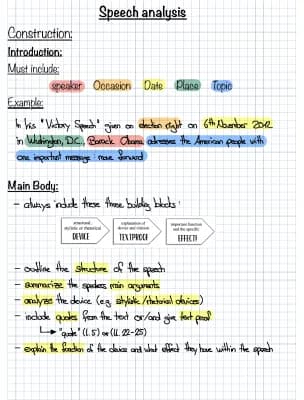 Speech analysis
Construction:
Introduction:
Must include:
speaker Occasion Date Place Topic
Example:
In his "Victory Speech" given on election night on 6th November 2012
in Washington, D.C., Barack Obama adresses the American people with
one important message: move forward
Main Body:
- always include these three building blocks:
structural, stylistic or rhetorical DEVICE
explanation of device and citation TEXTPROOF
important function and the specific EFFECT!
- outline the structure of the speech
- summarize the speakers main arguments
- analyze the device (e.g. stylistic/rhetorical devices)
- include quotes from the text or/and give text proof
"quote" (l. 5) or (ll. 22-25)
- explain the function of the device and what effect they have within the speech